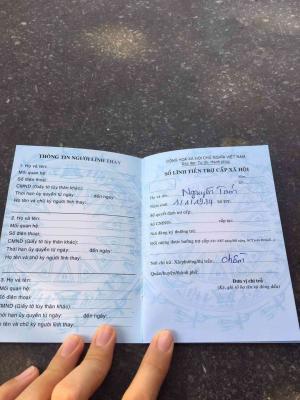 THÔNG TIN NGƯỜI LĨNH THAY
1. Họ và tên:
Mối quan hệ:
Số điện thoại:
CMND (Giấy tờ tùy thân khác):
Thời hạn ủy quyền từ ngày: đến ngày:
Họ tên và chữ ký người lĩnh thay:
2. Họ và tên:
Mối quan hệ:
Số điện thoại:
CMND (Giấy tờ tùy thân khác):
Thời hạn ủy quyền từ ngày: đến ngày:
Họ tên và chữ ký người lĩnh thay:
3. Họ và tên:
Mối quan hệ:
Số điện thoại:
CMND (Giấy tờ tùy thân khác):
Thời hạn ủy quyền từ ngày: đến ngày:
Họ tên và chữ ký người lĩnh thay:
CỘNG HÒA XÃ HỘI CHỦ NGHĨA VIỆT NAM
Độc lập - Tự do - Hạnh phúc
SỔ LĨNH TIỀN TRỢ CẤP XÃ HỘI
Họ và tên: Nguyễn
Năm sinh: 1/1/1934
Số quyết định trợ cấp:
Số CMND: cấp tại:
Nơi đăng ký thường trú:
Nơi chi trả: Xã/phường/thị trấn:
Quận/huyện/thành phố:
Đơn vị chi trả
(Ký, ghi rõ họ tên và đóng dấu)